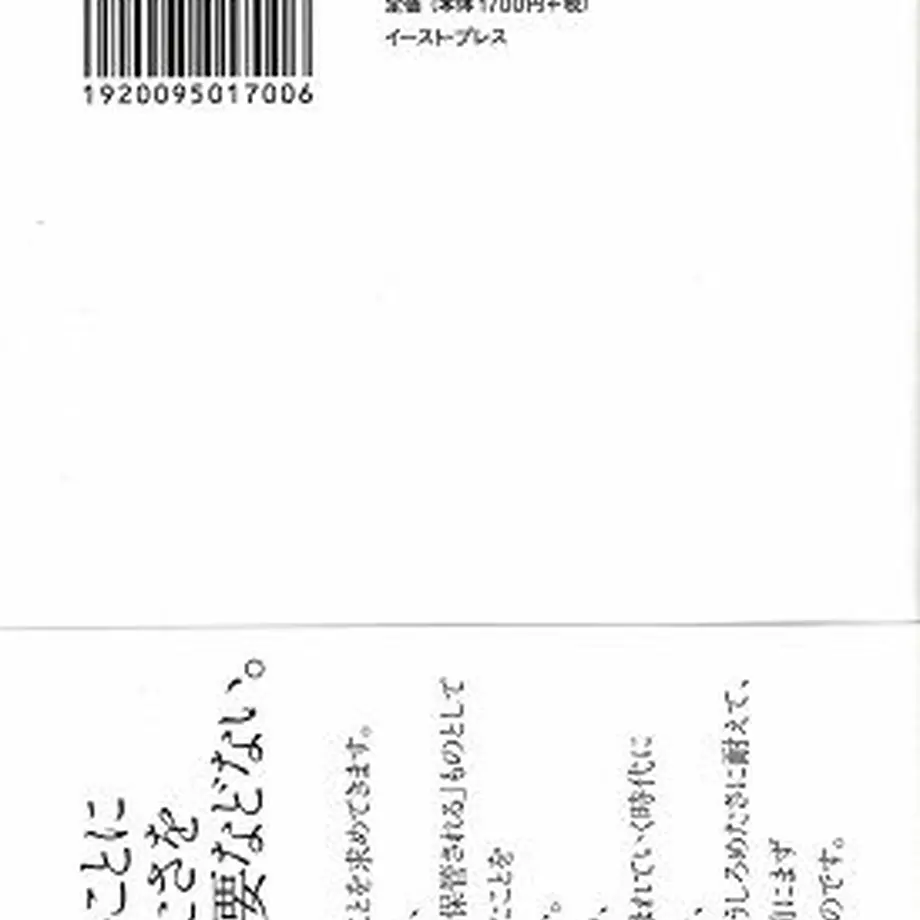 定価（本体1700円＋税）
イースト・プレス
1920095017006
ことに
さを
要などない。
とを求めてきます。
、
保管される」ものとして
たことを
。
、
まれていく時代に
、
うしろめたさに耐えて、
前にまず
のです。